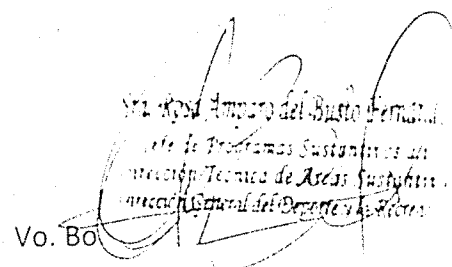 Sra. Rosa Amparo del Busto Fernánd
Jefe de Programas Sustantivos de
irección Técnica de Areas Sustantiv
irección General del Deporte y la Recrea
Vo. Bo